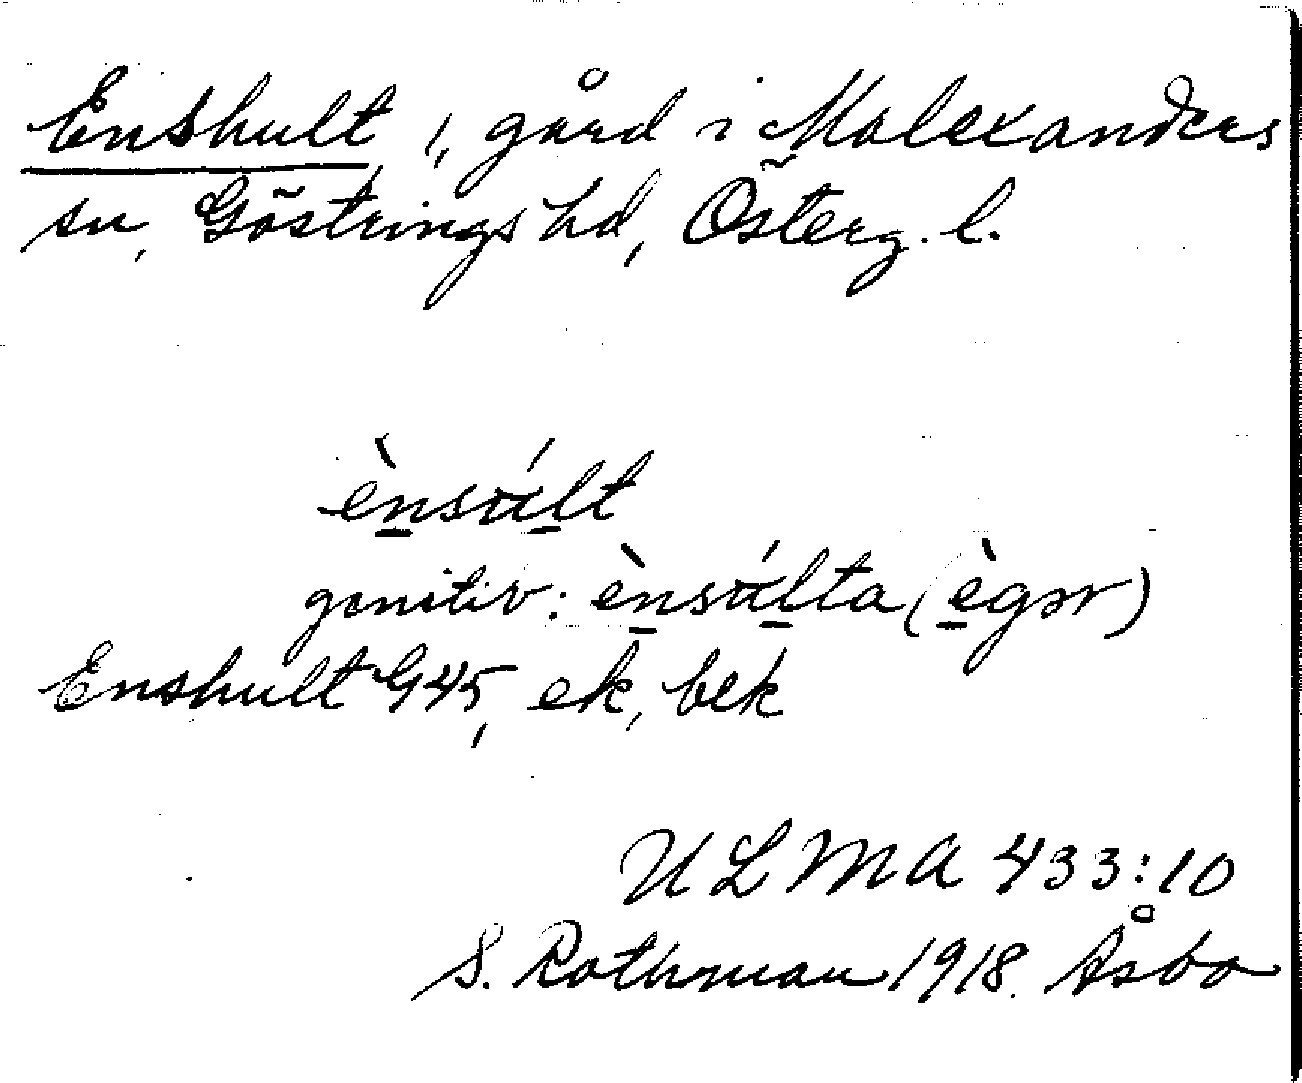 Enshult, gård i Malexanders
sn, Göstrings hd, Österg. l.
ènsúlt
genitiv: ènsúlta (ègər)
Enshult G45, ek, bek
ULMA 433:10
S. Rothman 1918. Åsbo